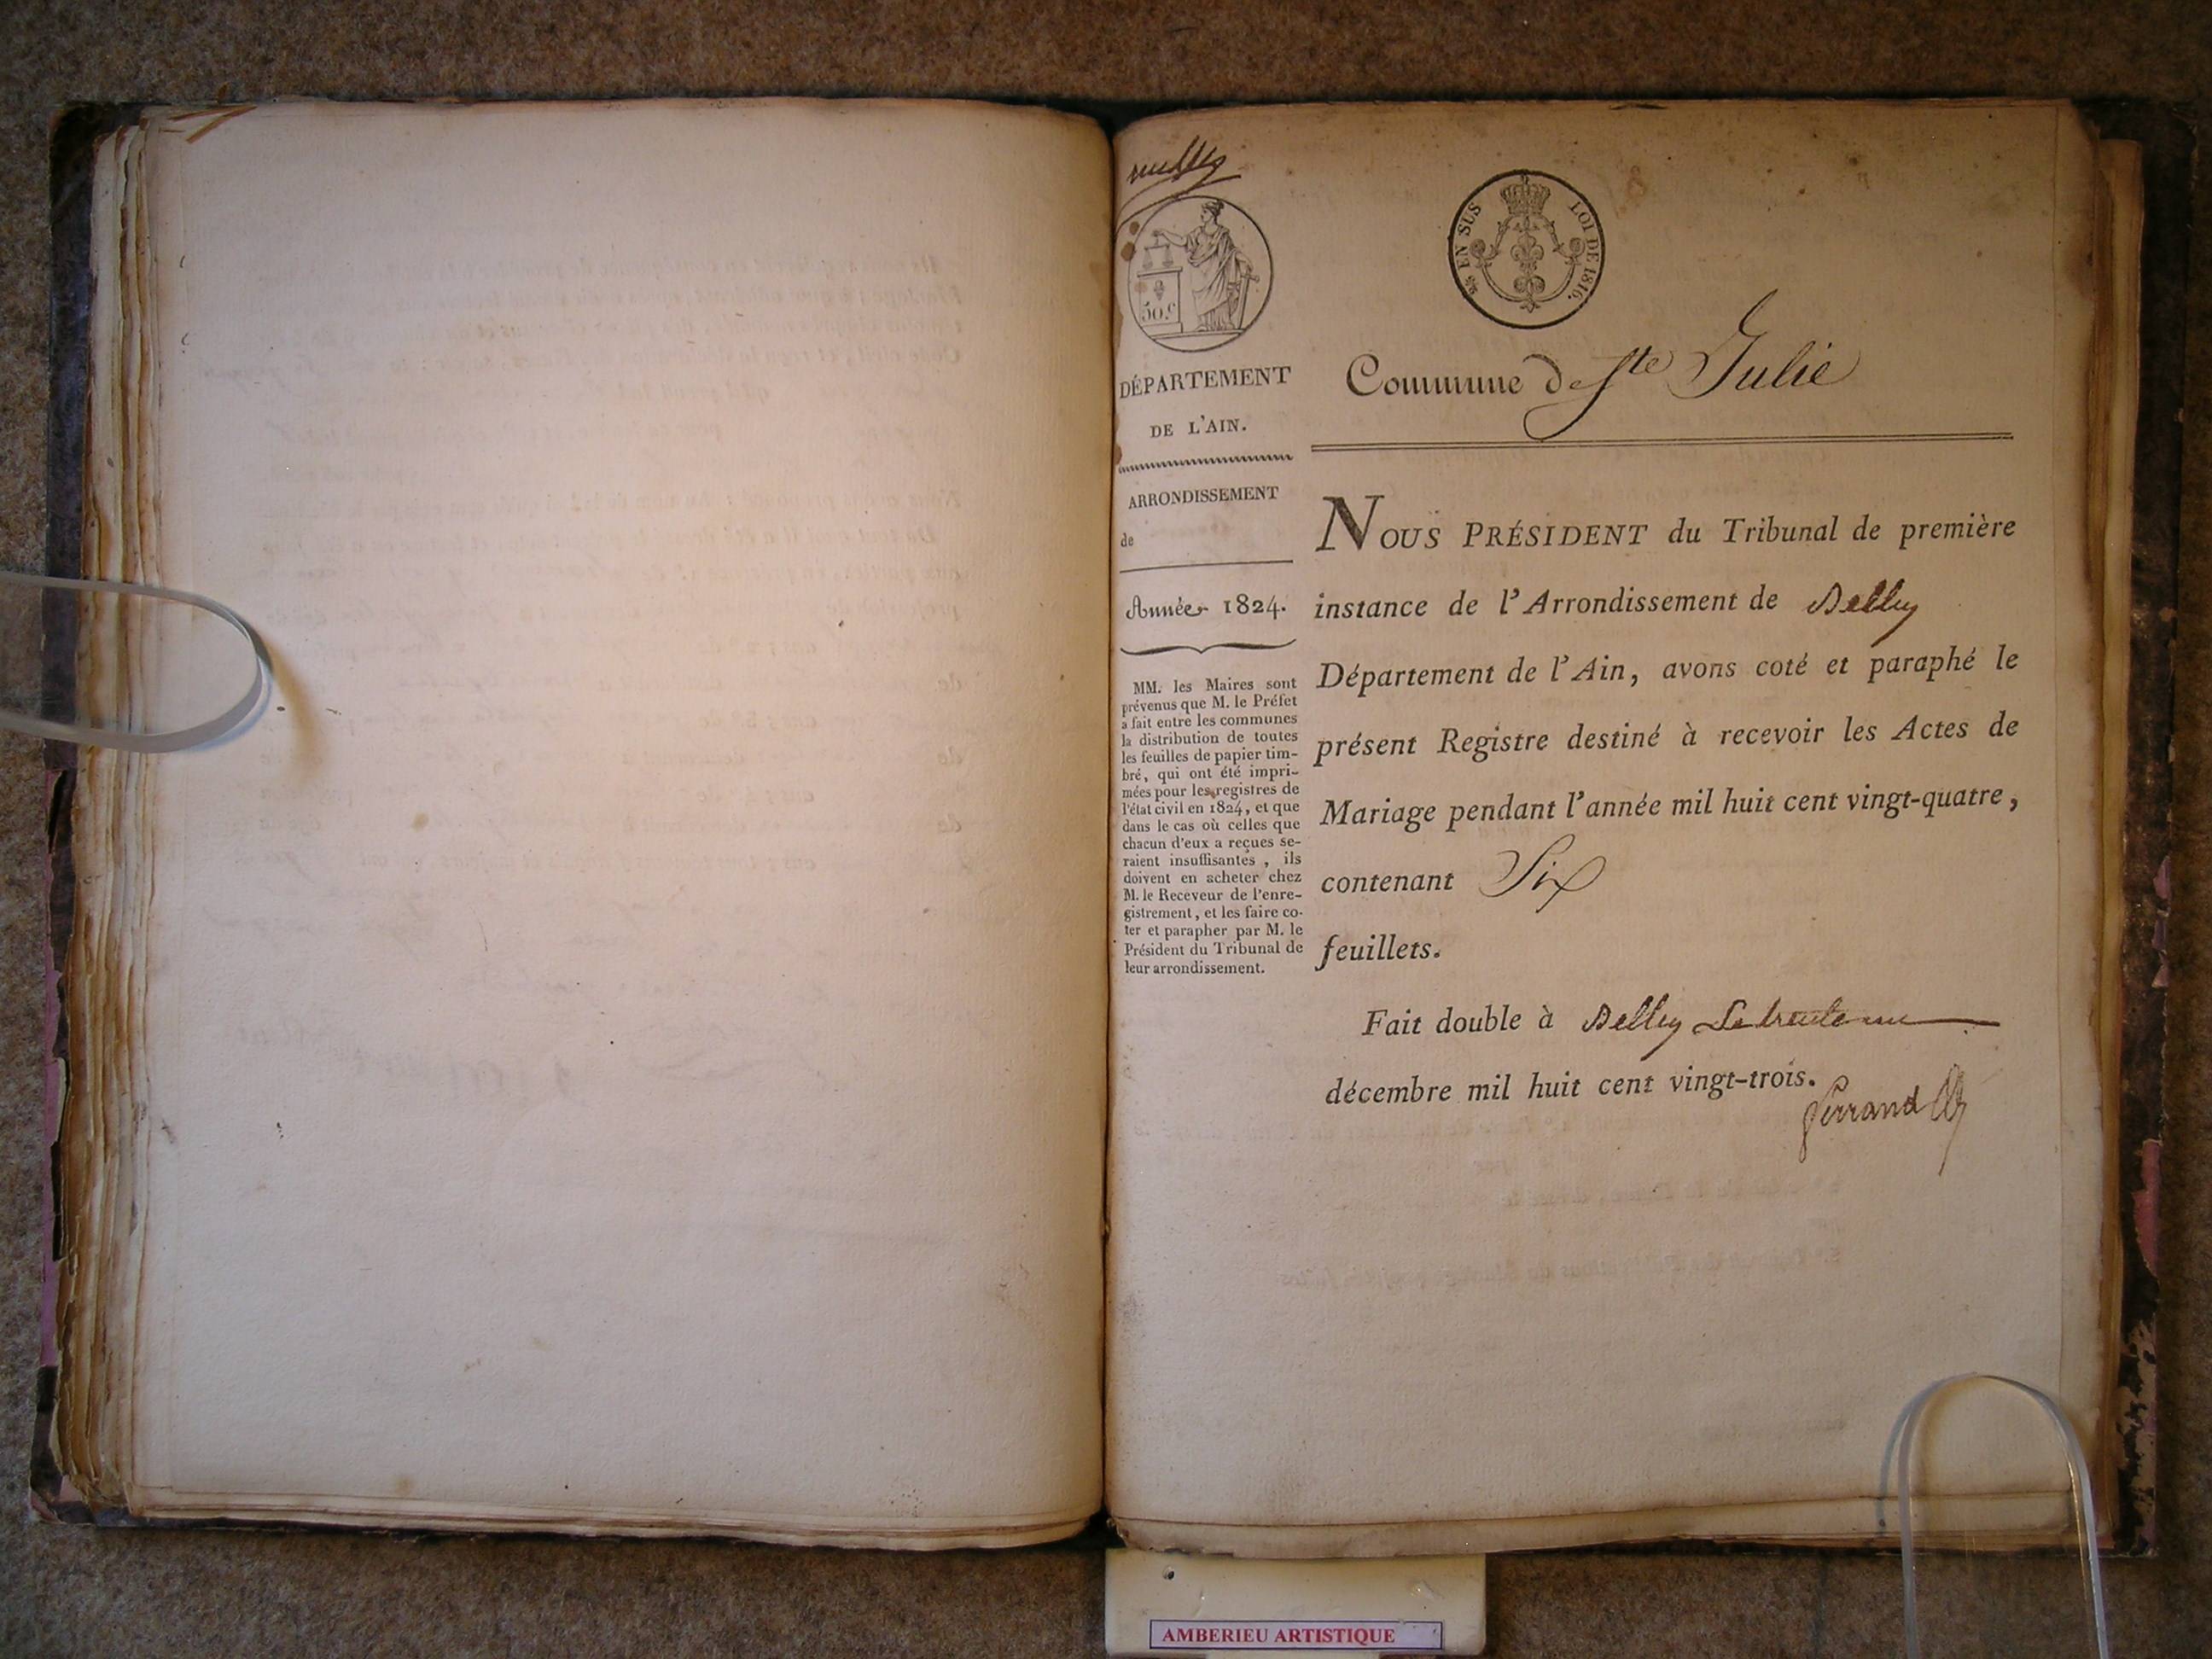 50.c
EN SUS
LOI DE 1816.
DÉPARTEMENT
DE L'AIN.
ARRONDISSEMENT
de
Année 1824.
MM. les Maires sont
prévenus que M. le Préfet
a fait entre les communes
la distribution de toutes
les feuilles de papier tim-
bré, qui ont été impri-
mées pour les registres de
l'état civil en 1824, et que
dans le cas où celles que
chacun d'eux a reçues se-
raient insuffisantes, ils
doivent en acheter chez
M. le Receveur de l'enre-
gistrement, et les faire co-
ter et parapher par M. le
Président du Tribunal de
leur arrondissement.
Commune de Ste Julie
NOUS PRÉSIDENT du Tribunal de première
instance de l'Arrondissement de Belley
Département de l'Ain, avons coté et paraphé le
présent Registre destiné à recevoir les Actes de
Mariage pendant l'année mil huit cent vingt-quatre,
contenant Six
feuillets.
Fait double à Belley Le trente un
décembre mil huit cent vingt-trois.
AMBERIEU ARTISTIQUE